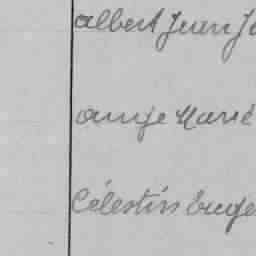 albert Jean Jo
ange Marie
Célestin Euge